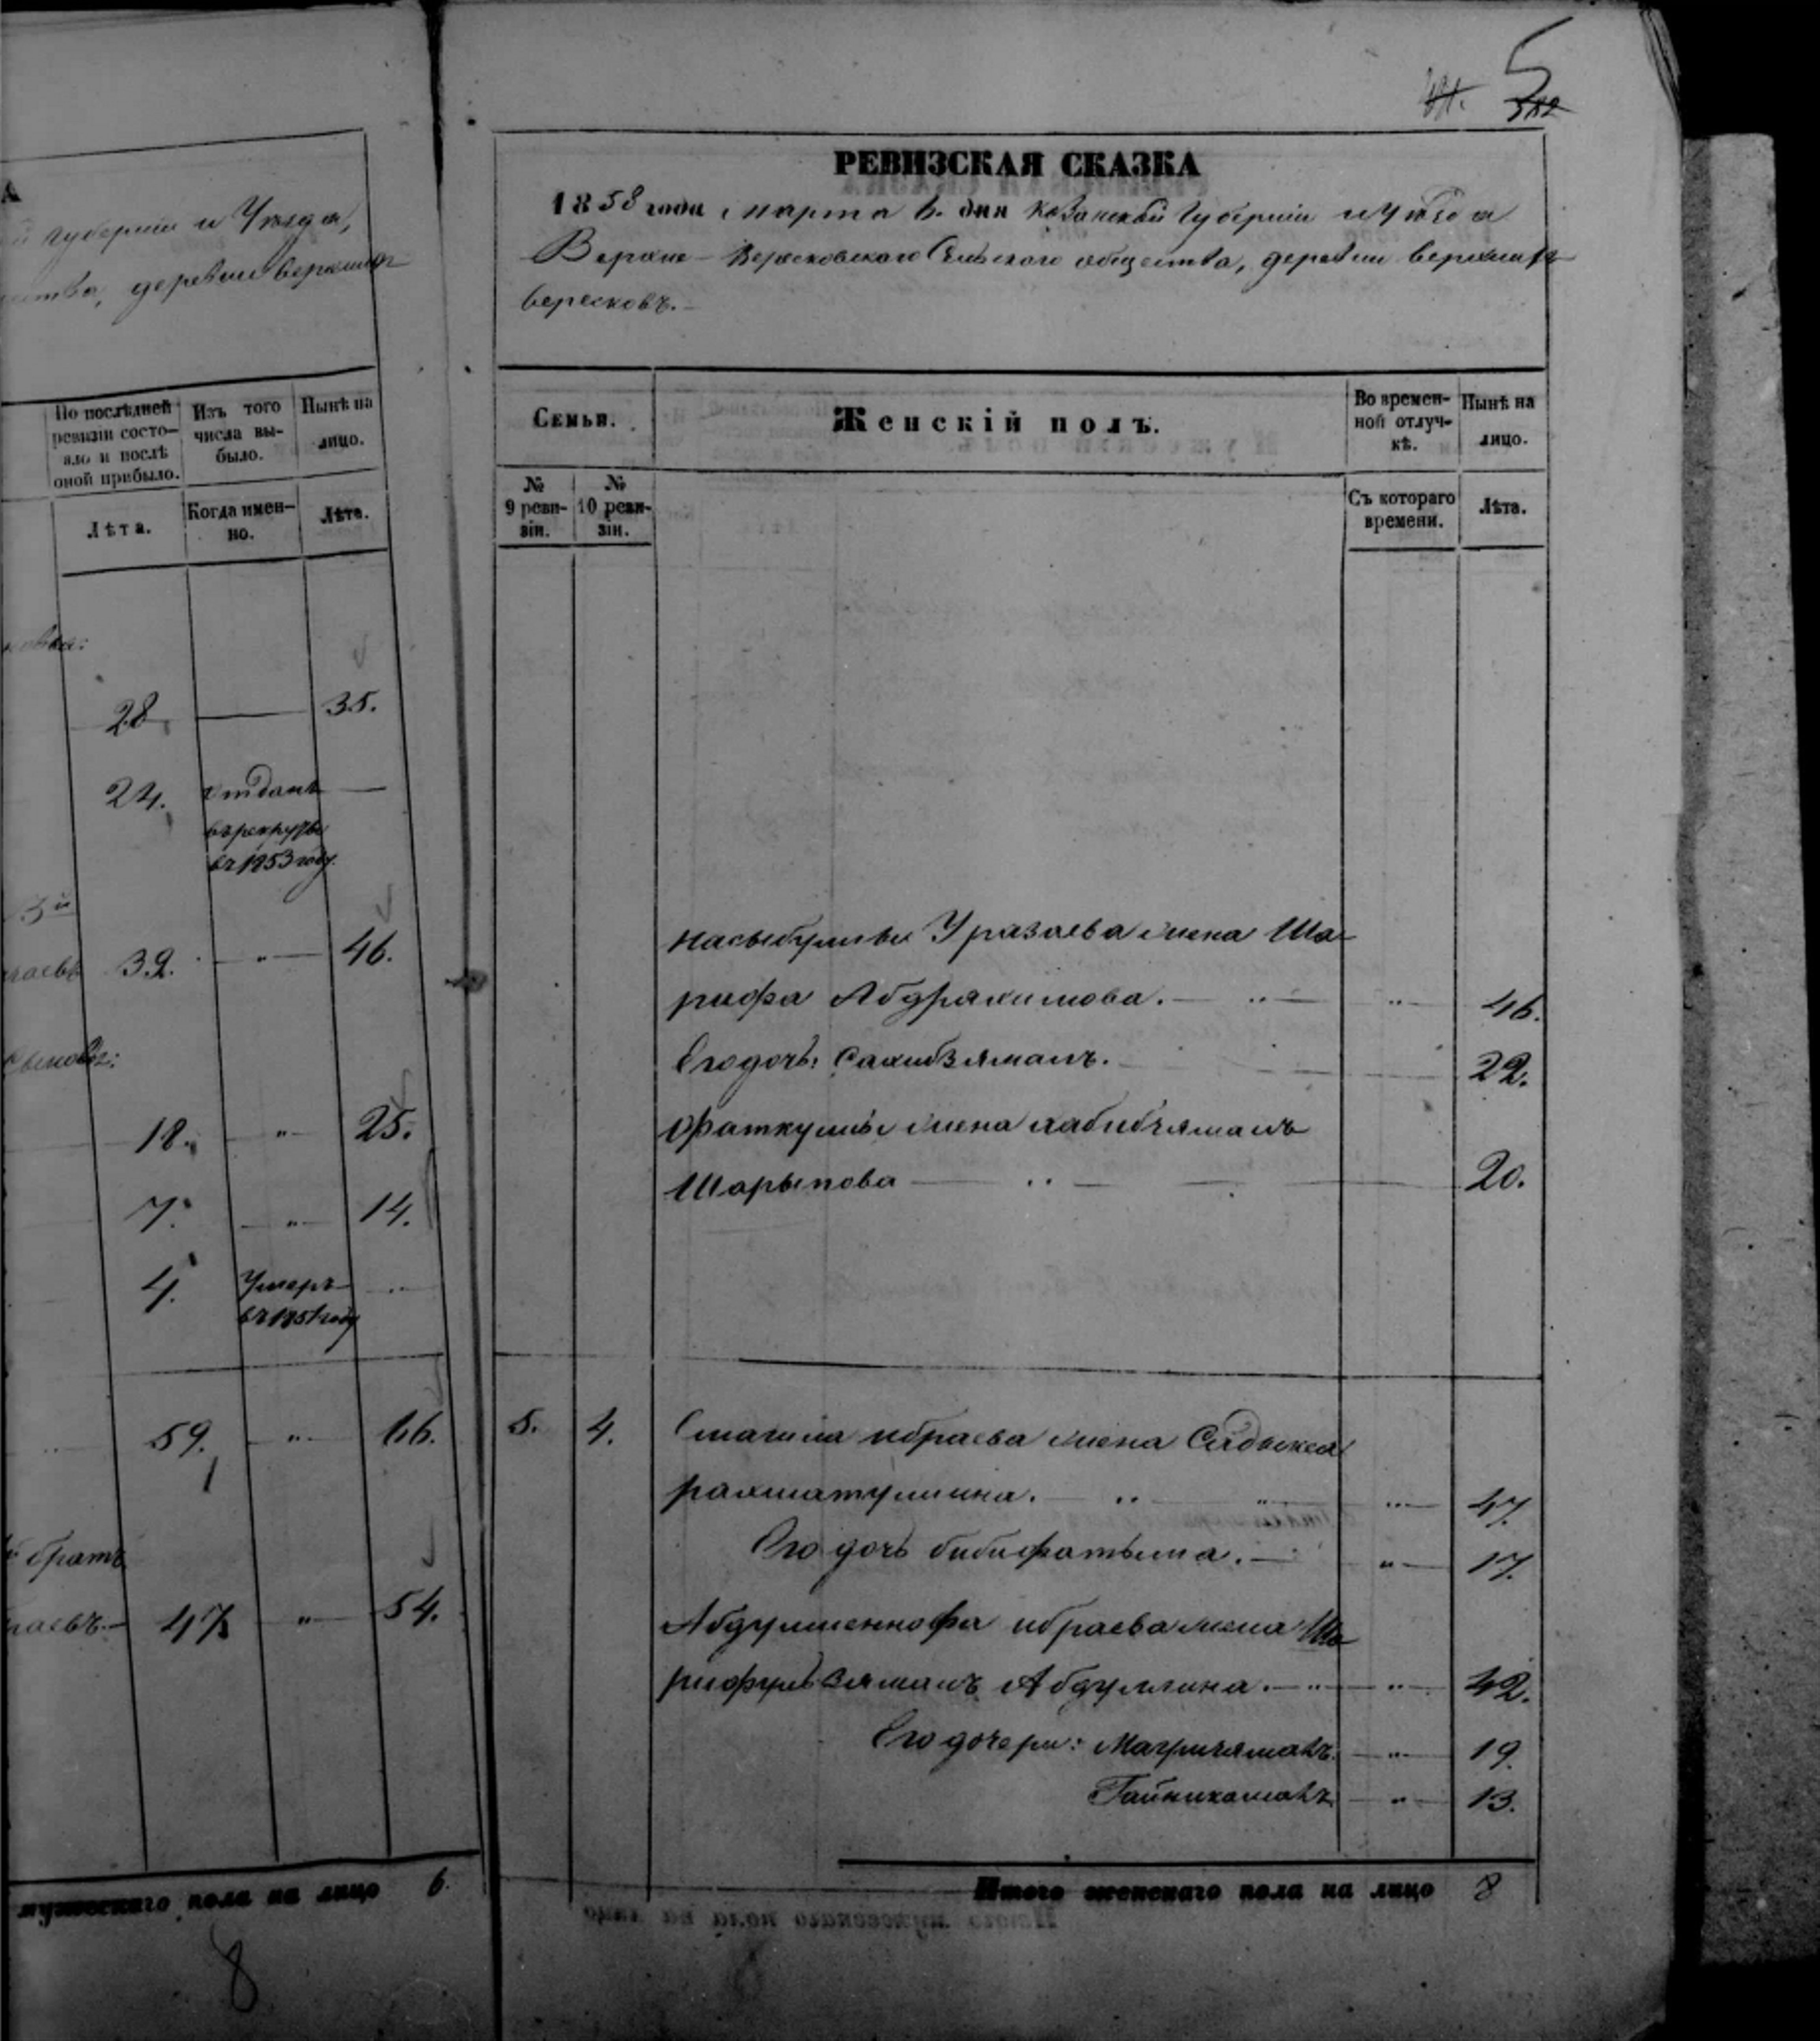 губерніи и Уѣзда,
деревни верхнихъ
По послѣдней ревизіи состояло и послѣ оной прибыло.
Изъ того числа выбыло.
Нынѣ на лицо.
Лѣта.
Когда именно.
Лѣта.
28 — 35.
24. отданъ —
въ рекруты
въ 1853 году.
3й
39. " 46.
сыновья:
18. " 25.
7. " 14.
4. Умеръ ..
въ 1851 году
59. " 66.
братъ
47 " 54.
мужескаго пола на лицо 6.
8
5
РЕВИЗСКАЯ СКАЗКА
1858 года марта 6. дня Казанской Губерніи и Уѣзда
Верхне-Верезковскаго Сельскаго общества, деревни верхнихъ
вересковъ.
Семьи.
Женскій полъ.
Во временной отлучкѣ.
Нынѣ на лицо.
№ 9 ревизіи.
№ 10 ревизіи.
Съ котораго времени.
Лѣта.
Насыбуллы Уразаева жена Ша-
рифа Абдрахимова. 46.
Его дочь: Сахибзяманъ. 22.
Фаткуллы жена хабибзяманъ
Шарыпова 20.
5. 4. Смагила ибраева жена Садыкса
рахматуллина. 47.
Его дочь бибифатыма. 17.
Абдулменнофа ибраева жена Ша-
рифульзяманъ Абдуллина. 42.
Его дочери: Магризяманъ. 19.
Гайникаманъ 13.
Итого женскаго пола на лицо 8